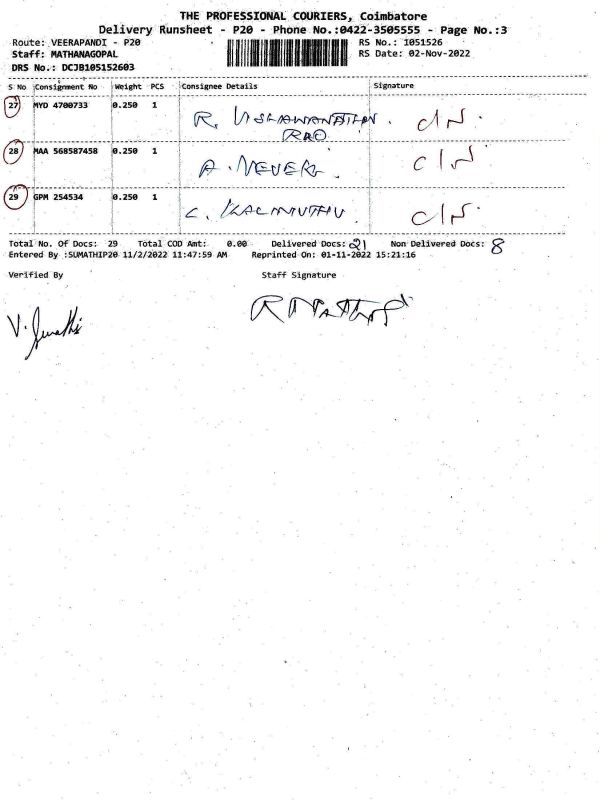 THE PROFESSIONAL COURIERS, Coimbatore
Delivery Runsheet - P20 - Phone No.:0422-3505555 - Page No.:3
Route: VEERAPANDI - P20 RS No.: 1051526
Staff: MATHANAGOPAL RS Date: 02-Nov-2022
DRS No.: DCJB105152603
S No Consignment No Weight PCS Consignee Details Signature
27 MYD 4700733 0.250 1 R. VISHAWANATHAN. C/N.
RAO
28 MAA 568587458 0.250 1 A. C/N.
29 GPM 254534 0.250 1 C. C/N.
Total No. Of Docs: 29 Total COD Amt: 0.00 Delivered Docs: 21 Non Delivered Docs: 8
Entered By :SUMATHIP20 11/2/2022 11:47:59 AM Reprinted On: 01-11-2022 15:21:16
Verified By Staff Signature
V. Sumathi